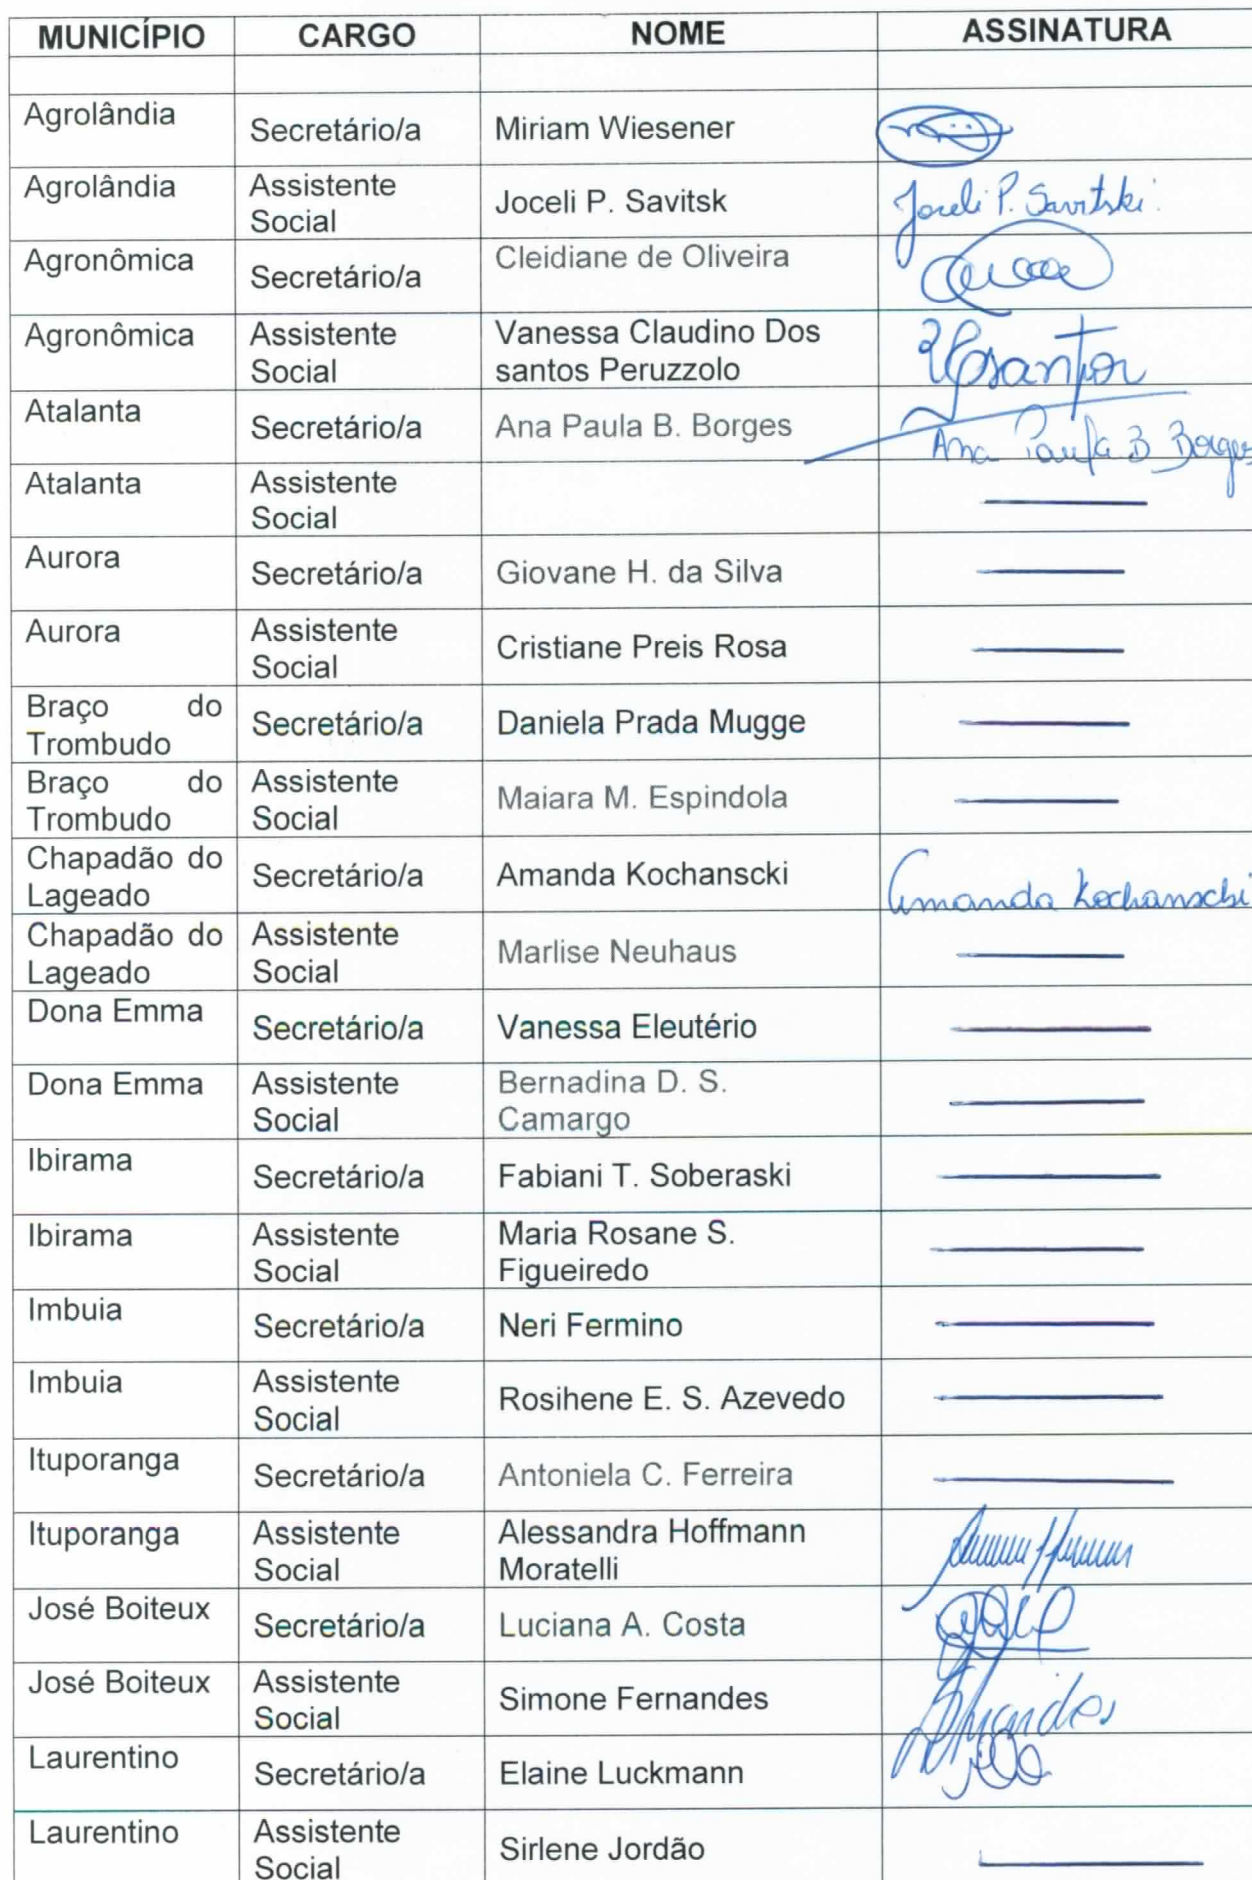 MUNICÍPIO CARGO NOME ASSINATURA
Agrolândia Secretário/a Miriam Wiesener
Agrolândia Assistente Social Joceli P. Savitsk Joceli P. Savitski
Agronômica Secretário/a Cleidiane de Oliveira
Agronômica Assistente Social Vanessa Claudino Dos santos Peruzzolo
Atalanta Secretário/a Ana Paula B. Borges Ana Paula B Borges
Atalanta Assistente Social
Aurora Secretário/a Giovane H. da Silva
Aurora Assistente Social Cristiane Preis Rosa
Braço do Trombudo Secretário/a Daniela Prada Mugge
Braço do Trombudo Assistente Social Maiara M. Espindola
Chapadão do Lageado Secretário/a Amanda Kochanscki Amanda Kochanscki
Chapadão do Lageado Assistente Social Marlise Neuhaus
Dona Emma Secretário/a Vanessa Eleutério
Dona Emma Assistente Social Bernadina D. S. Camargo
Ibirama Secretário/a Fabiani T. Soberaski
Ibirama Assistente Social Maria Rosane S. Figueiredo
Imbuia Secretário/a Neri Fermino
Imbuia Assistente Social Rosihene E. S. Azevedo
Ituporanga Secretário/a Antoniela C. Ferreira
Ituporanga Assistente Social Alessandra Hoffmann Moratelli
José Boiteux Secretário/a Luciana A. Costa
José Boiteux Assistente Social Simone Fernandes
Laurentino Secretário/a Elaine Luckmann
Laurentino Assistente Social Sirlene Jordão